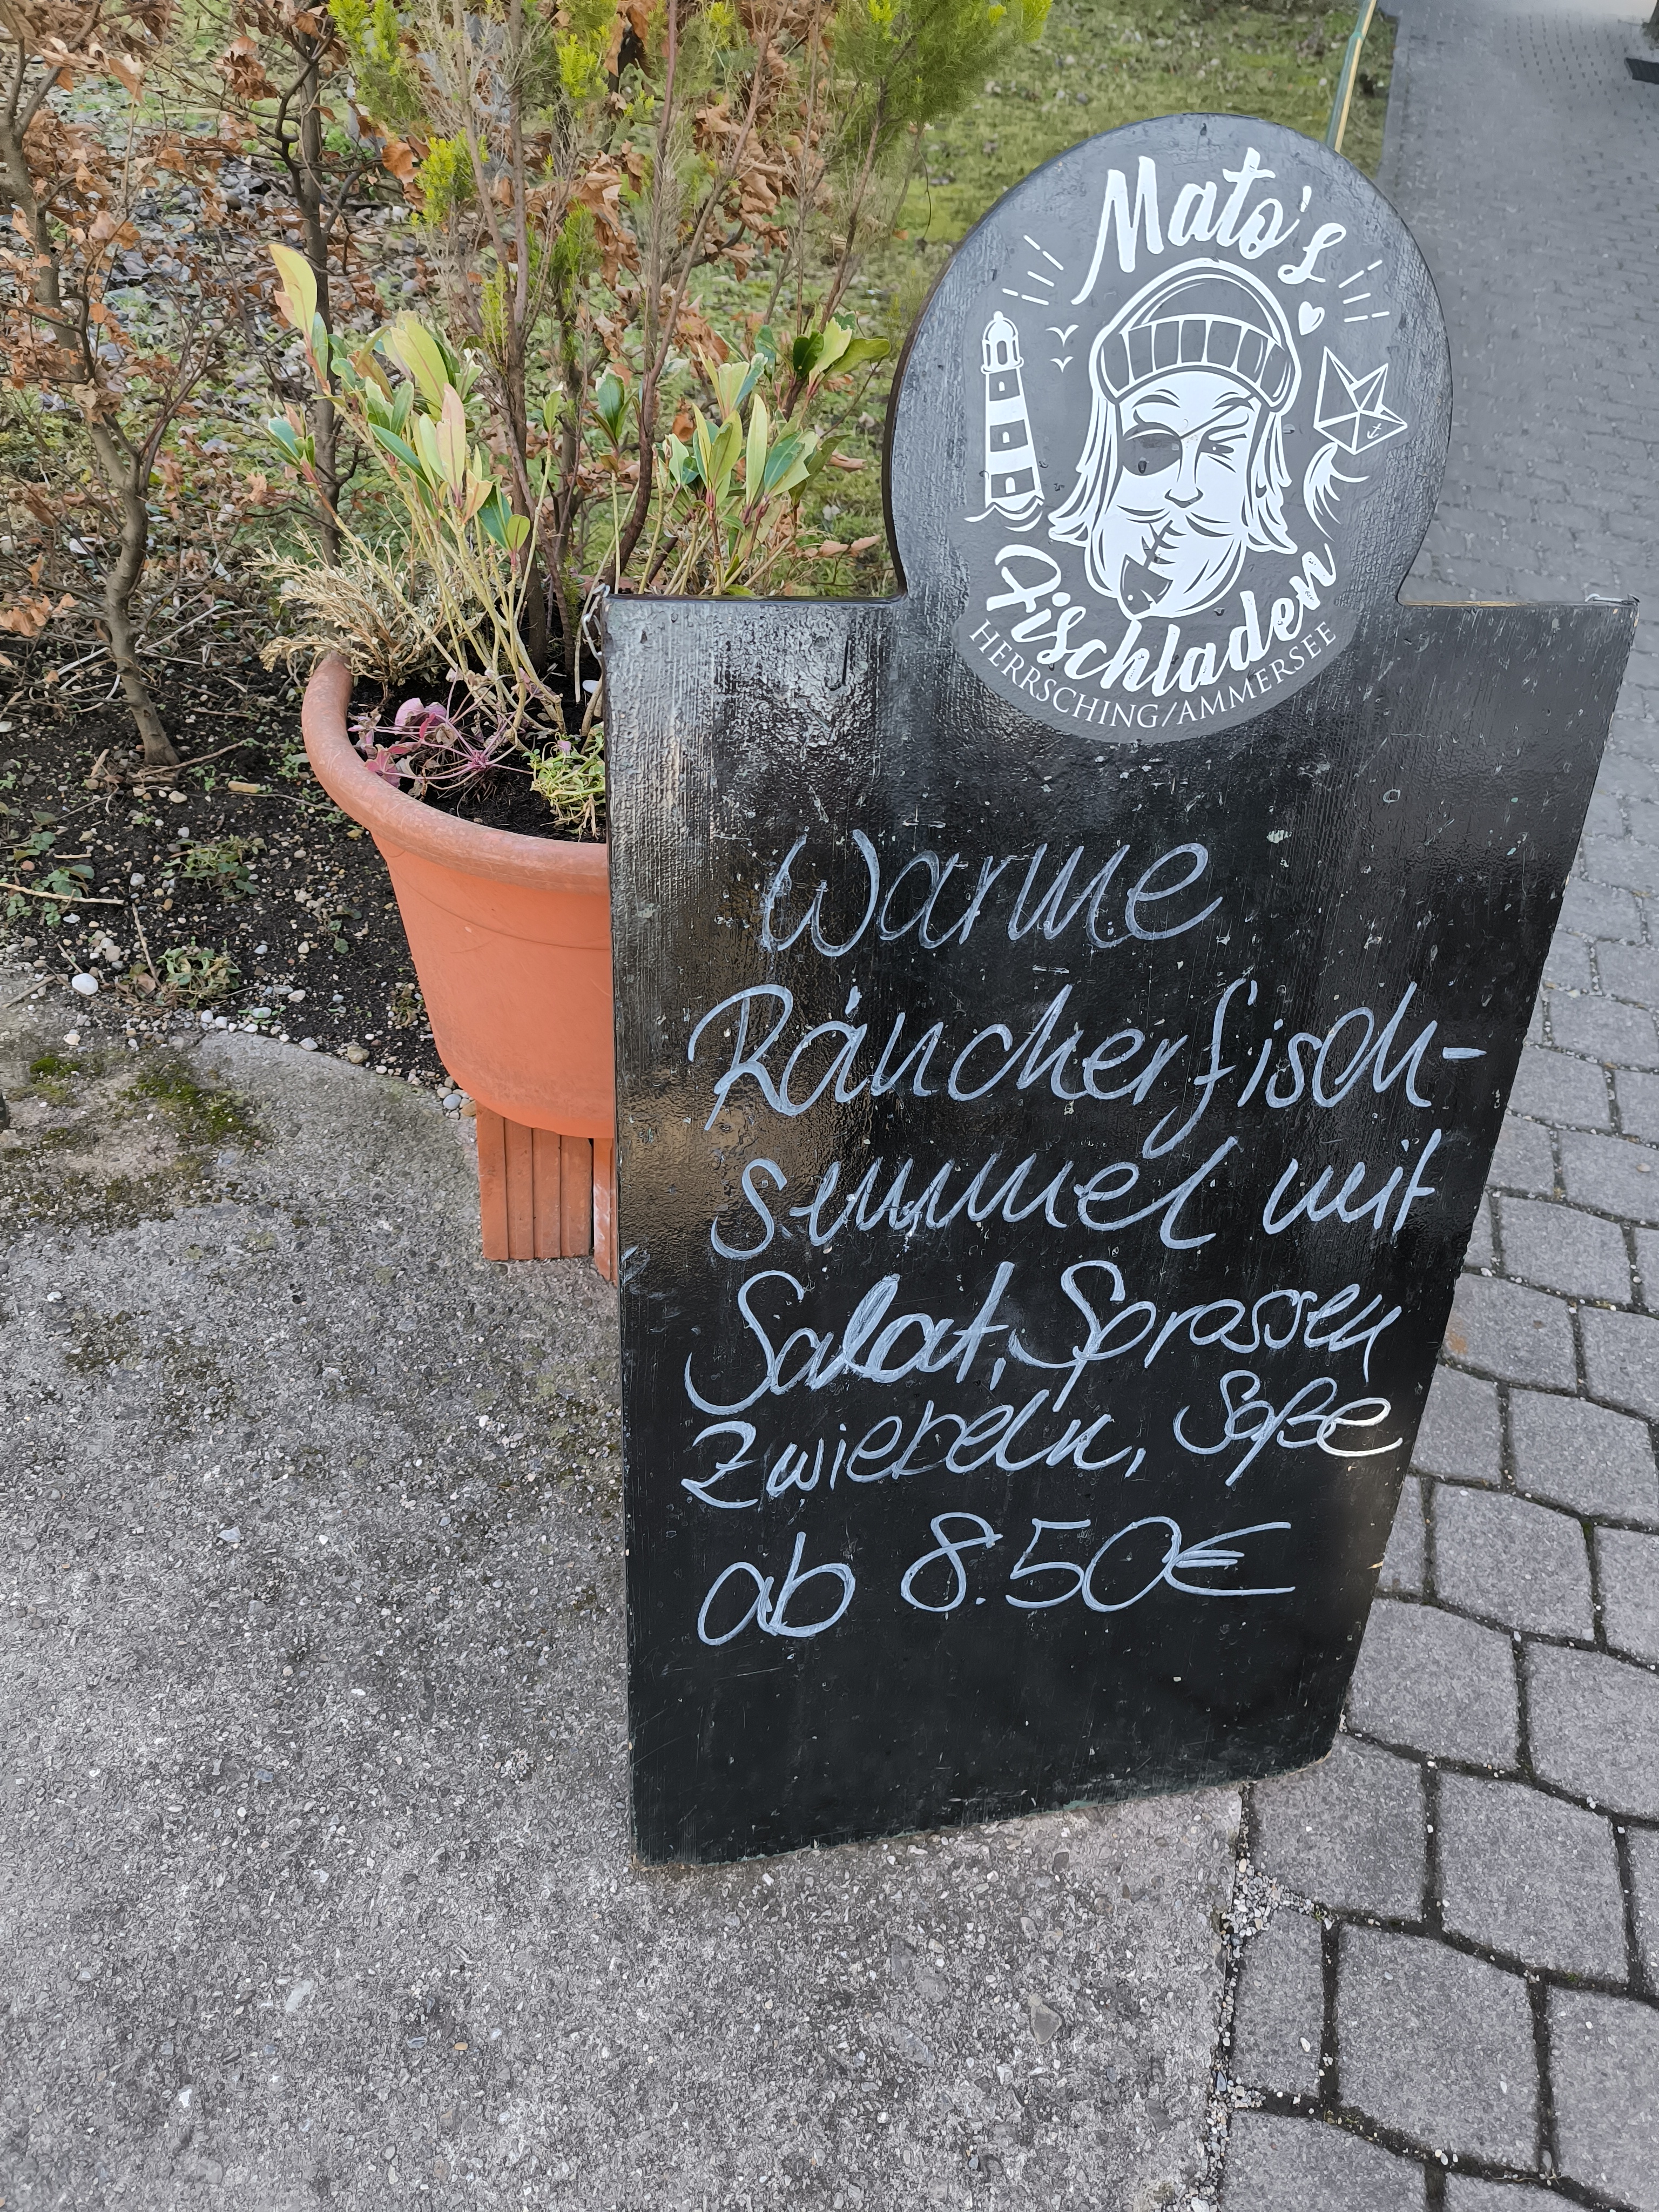 Mato's
Fischladen
HERRSCHING/AMMERSEE
Warme
Räucherfisch-
semmel mit
Salat, Sprossen
Zwiebeln, Soße
ab 8.50€